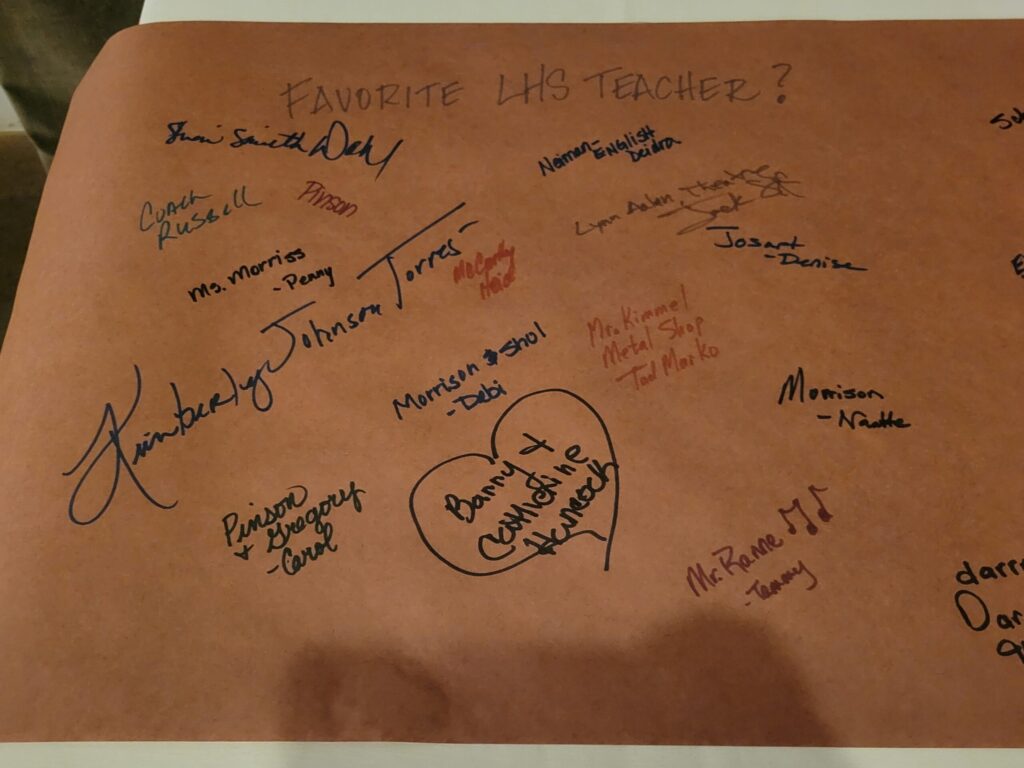 FAVORITE LHS TEACHER?
Smith
Neiman- ENGLISH
Deidra
COACH
RUSSELL
Pinson
Lynn Theatre
Jack
Josart
- Denise
Ms. Morriss
- Penny
Kimberley Johnson Torres
McCarthy
Heidi
Mr. Kimmel
Metal Shop
Tad Marko
Morrison & Shol
- Debi
Morrison
Banny &
Pinson
+ Gregory
- Carol
Mr. Ranne
- Tammy
darr
Dar